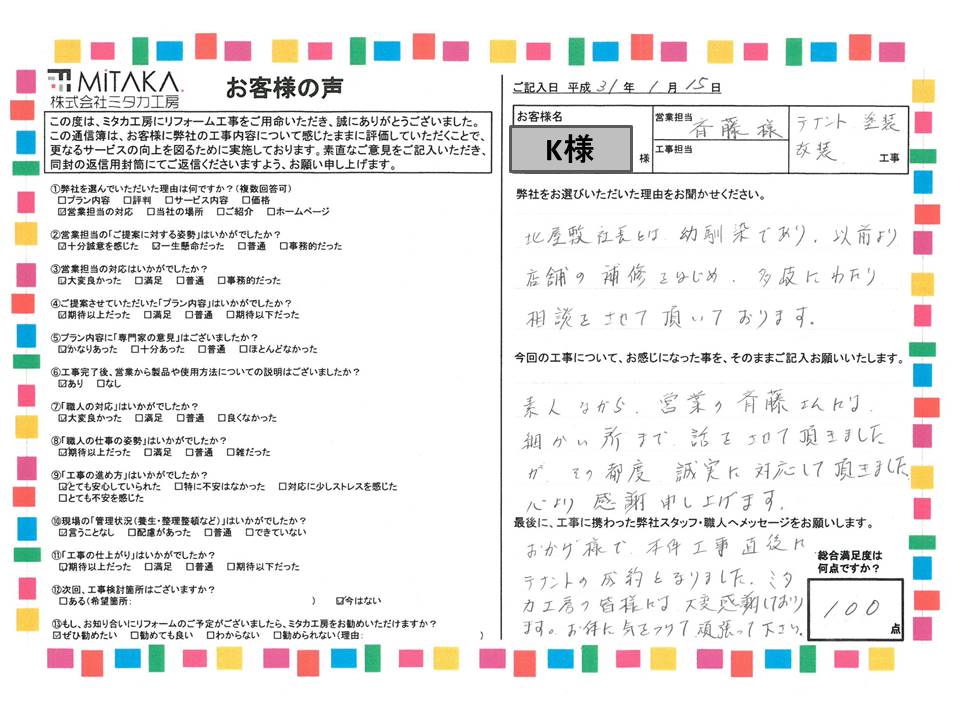 MiTAKA.
株式会社ミタカ工房
お客様の声
この度は、ミタカ工房にリフォーム工事をご用命いただき、誠にありがとうございました。
この通信簿は、お客様に弊社の工事内容について感じたままに評価していただくことで、
更なるサービスの向上を図るために実施しております。素直なご意見をご記入いただき、
同封の返信用封筒にてご返信くださいますよう、お願い申し上げます。
①弊社を選んでいただいた理由は何ですか？(複数回答可)
□プラン内容 □評判 □サービス内容 □価格
☑営業担当の対応 □当社の場所 □ご紹介 □ホームページ
②営業担当の「ご提案に対する姿勢」はいかがでしたか？
☑十分誠意を感じた ☑一生懸命だった □普通 □事務的だった
③営業担当の対応はいかがでしたか？
☑大変良かった □満足 □普通 □事務的だった
④ご提案させていただいた「プラン内容」はいかがでしたか？
☑期待以上だった □満足 □普通 □期待以下だった
⑤プラン内容に「専門家の意見」はございましたか？
☑かなりあった □十分あった □普通 □ほとんどなかった
⑥工事完了後、営業から製品や使用方法についての説明はございましたか？
☑あり □なし
⑦「職人の対応」はいかがでしたか？
☑大変良かった □満足 □普通 □良くなかった
⑧「職人の仕事の姿勢」はいかがでしたか？
☑期待以上だった □満足 □普通 □雑だった
⑨「工事の進め方」はいかがでしたか？
☑とても安心していられた □特に不安はなかった □対応に少しストレスを感じた
□とても不安を感じた
⑩現場の「管理状況(養生・整理整頓など)」はいかがでしたか？
☑言うことなし □配慮があった □普通 □できていない
⑪「工事の仕上がり」はいかがでしたか？
☑期待以上だった □満足 □普通 □期待以下だった
⑫次回、工事検討箇所はございますか？
□ある(希望箇所: ) ☑今はない
⑬もし、お知り合いにリフォームのご予定がございましたら、ミタカ工房をお勧めいただけますか？
☑ぜひ勧めたい □勧めても良い □わからない □勧められない(理由: )
ご記入日 平成 31 年 1 月 15 日
お客様名
K様 様
営業担当 斉藤様
工事担当
テナント 塗装
改装 工事
弊社をお選びいただいた理由をお聞かせください。
北屋敷社長とは 幼馴染であり、以前より
店舗の補修をはじめ、多岐にわたり
相談をさせて頂いております。
今回の工事について、お感じになった事を、そのままご記入お願いいたします。
素人ながら、営業の斉藤さんには、
細かい所まで 話をさせて頂きました
が、その都度 誠実に対応して頂きました
心より感謝申し上げます。
最後に、工事に携わった弊社スタッフ・職人へメッセージをお願いします。
おかげ様で、本件工事直後に
テナントの成約となりました。ミタ
カ工房の皆様には 大変感謝しており
ます。お体に気をつけて頑張って下さい。
総合満足度は
何点ですか？
100 点